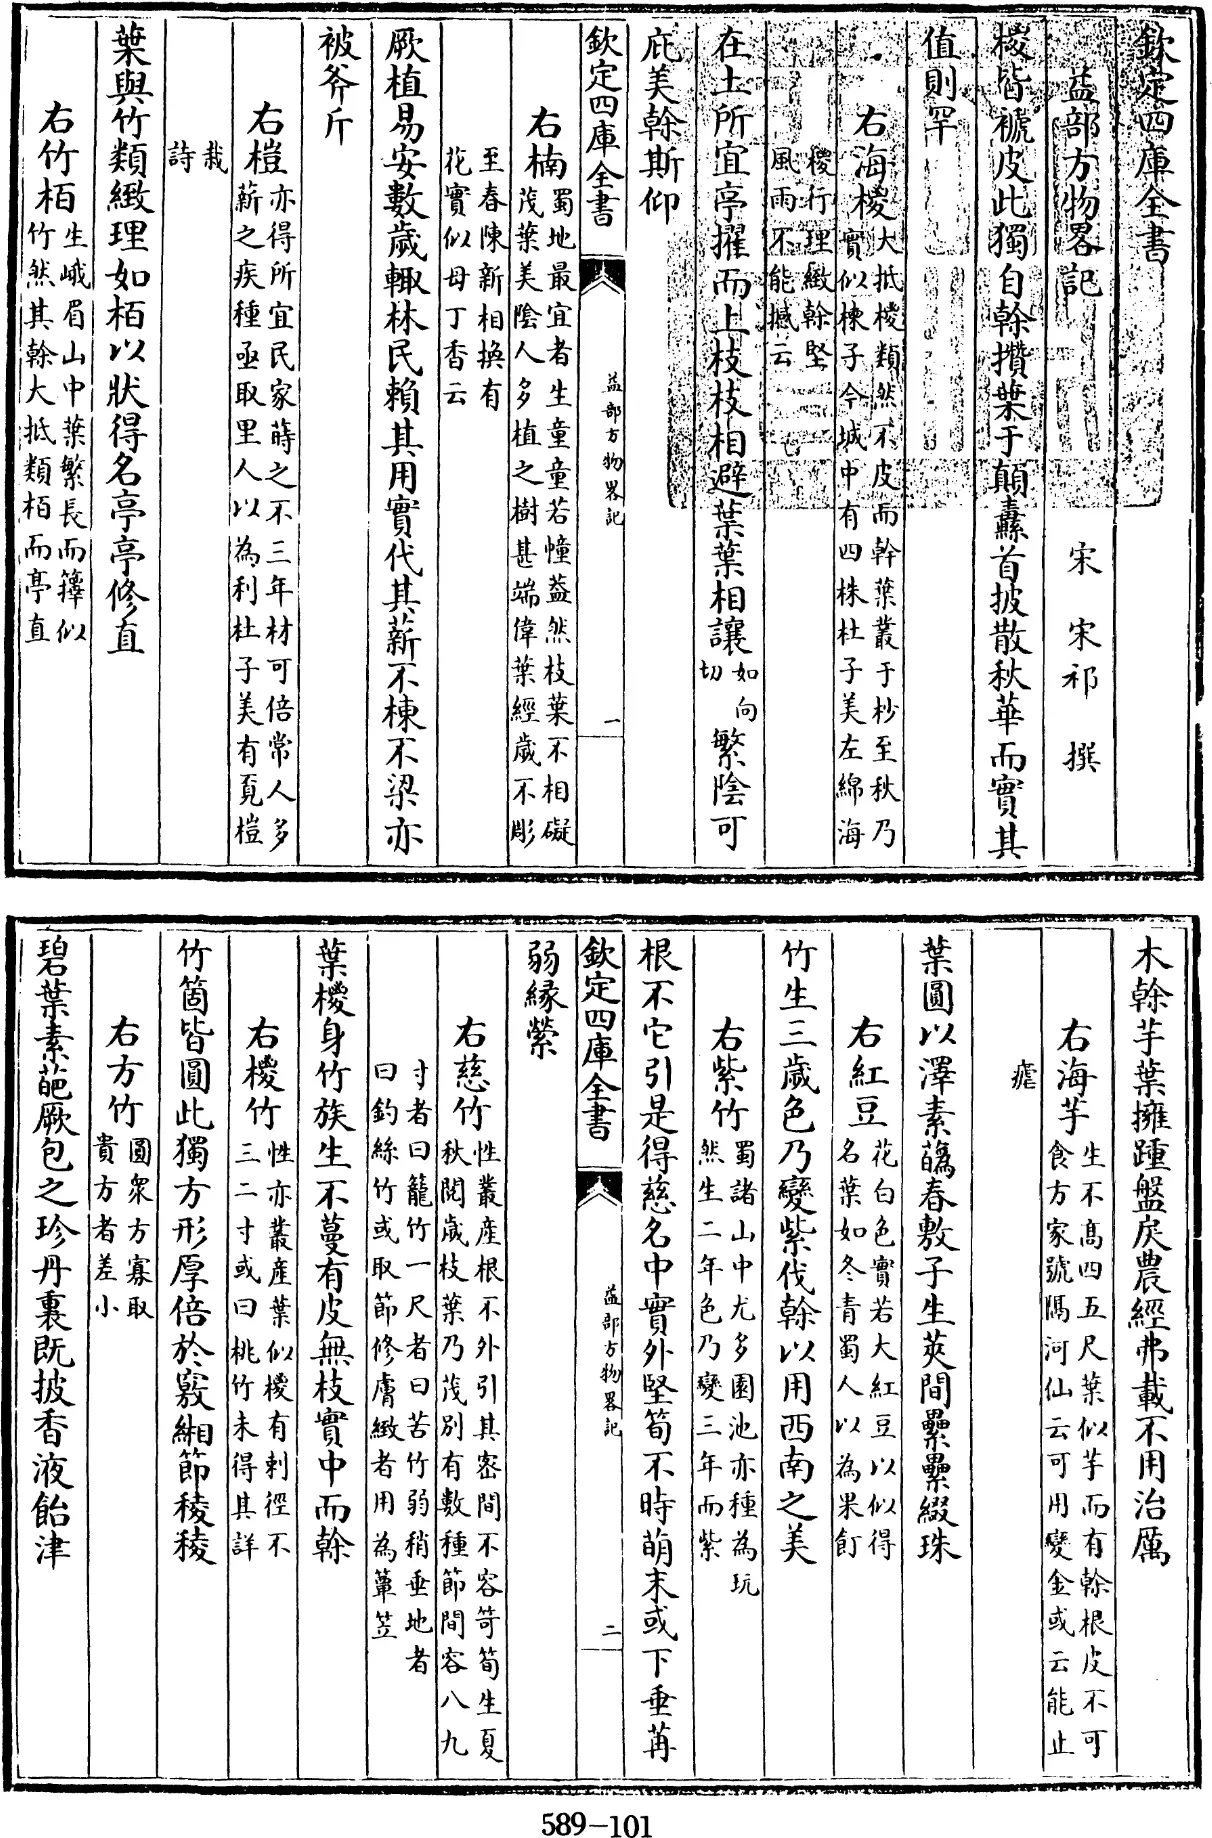 欽定四庫全書
益部方物畧記
宋 宋祁 撰
椶皆褫皮此獨自幹攢葉于顛纛首披散秋華而實其
值則罕
右海椶大抵椶類然不皮而幹葉叢于杪至秋乃
實似楝子今城中有四株杜子美左綿海
椶行理緻幹堅
風雨不能撼云
在土所宜亭擢而上枝枝相避葉葉相讓如向切繁陰可
庇美幹斯仰
欽定四庫全書 益部方物畧記 一
右楠蜀地最宜者生童童若幢葢然枝葉不相礙
茂葉美陰人多植之樹甚端偉葉經歲不彫
至春陳新相換有
花實似母丁香云
厥植易安數歲輒林民賴其用實代其薪不棟不梁亦
被斧斤
右榿亦得所宜民家蒔之不三年材可倍常人多
薪之疾種亟取里人以為利杜子美有覓榿
栽
詩
葉與竹類緻理如栢以狀得名亭亭修直
右竹栢生峨眉山中葉繁長而籜似
竹然其幹大抵類栢而亭直
木幹芋葉擁踵盤戾農經弗載不用治厲
右海芋生不高四五尺葉似芋而有幹根皮不可
食方家號隅河仙云可用變金或云能止
瘧
葉圓以澤素蘤春敷子生莢間纍纍綴珠
右紅豆花白色實若大紅豆以似得
名葉如冬青蜀人以為果飣
竹生三歲色乃變紫伐幹以用西南之美
右紫竹蜀諸山中尤多園池亦種為玩
然生二年色乃變三年而紫
根不它引是得慈名中實外堅筍不時萌末或下垂苒
欽定四庫全書 益部方物畧記 二
弱緣縈
右慈竹性叢産根不外引其密間不容笴筍生夏
秋閱歲枝葉乃茂別有數種節間容八九
寸者曰籠竹一尺者曰苦竹弱稍垂地者
曰釣絲竹或取節修膚緻者用為簟笠
葉椶身竹族生不蔓有皮無枝實中而幹
右椶竹性亦叢産葉似椶有刺徑不
三二寸或曰桃竹未得其詳
竹箇皆圓此獨方形厚倍於竅緗節稜稜
右方竹圓衆方寡取
貴方者差小
碧葉素葩厥包之珍丹裏既披香液飴津
589-101